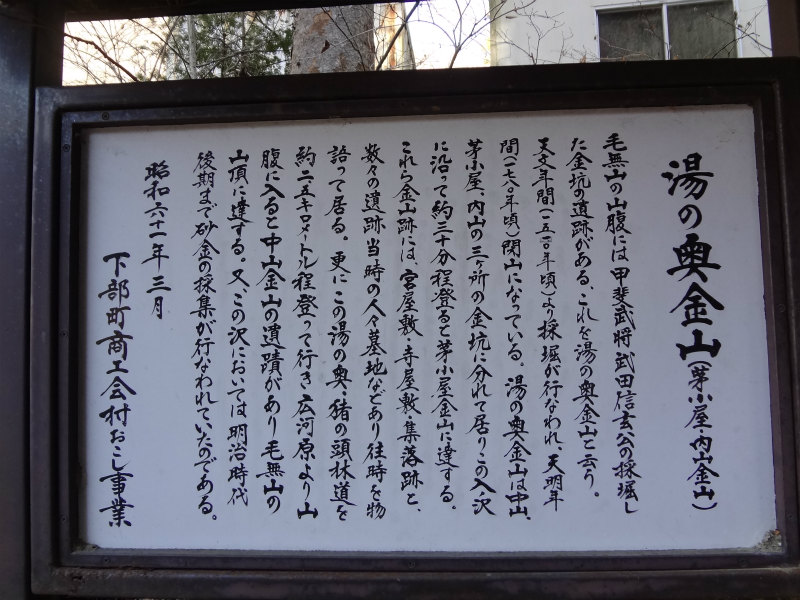 湯の奥金山(茅小屋・内山金山)
毛無山の山腹には甲斐武将武田信玄公の採堀し
た金坑の遺跡がある、これを湯の奥金山と云う。
天文年間(一五三〇年頃)より採堀が行なわれ、天明年
間(一七八〇年頃)閉山になっている。湯の奥金山は中山、
茅小屋、内山の三ヶ所の金坑に分れて居りこの入沢
に沿って約三十分程登ると茅小屋金山に達する。
これら金山跡には、宮屋敷・寺屋敷・集落跡と、
数々の遺跡当時の人々墓地などあり往時を物
語って居る。更にこの湯の奥・猪の頭林道を
約二五キロメートル程登って行き広河原より山
腹に入ると中山金山の遺蹟があり毛無山の
山頂に達する。又、この沢においては明治時代
後期まで砂金の採集が行なわれていたのである。
昭和六十一年三月
下部町商工会村おこし事業